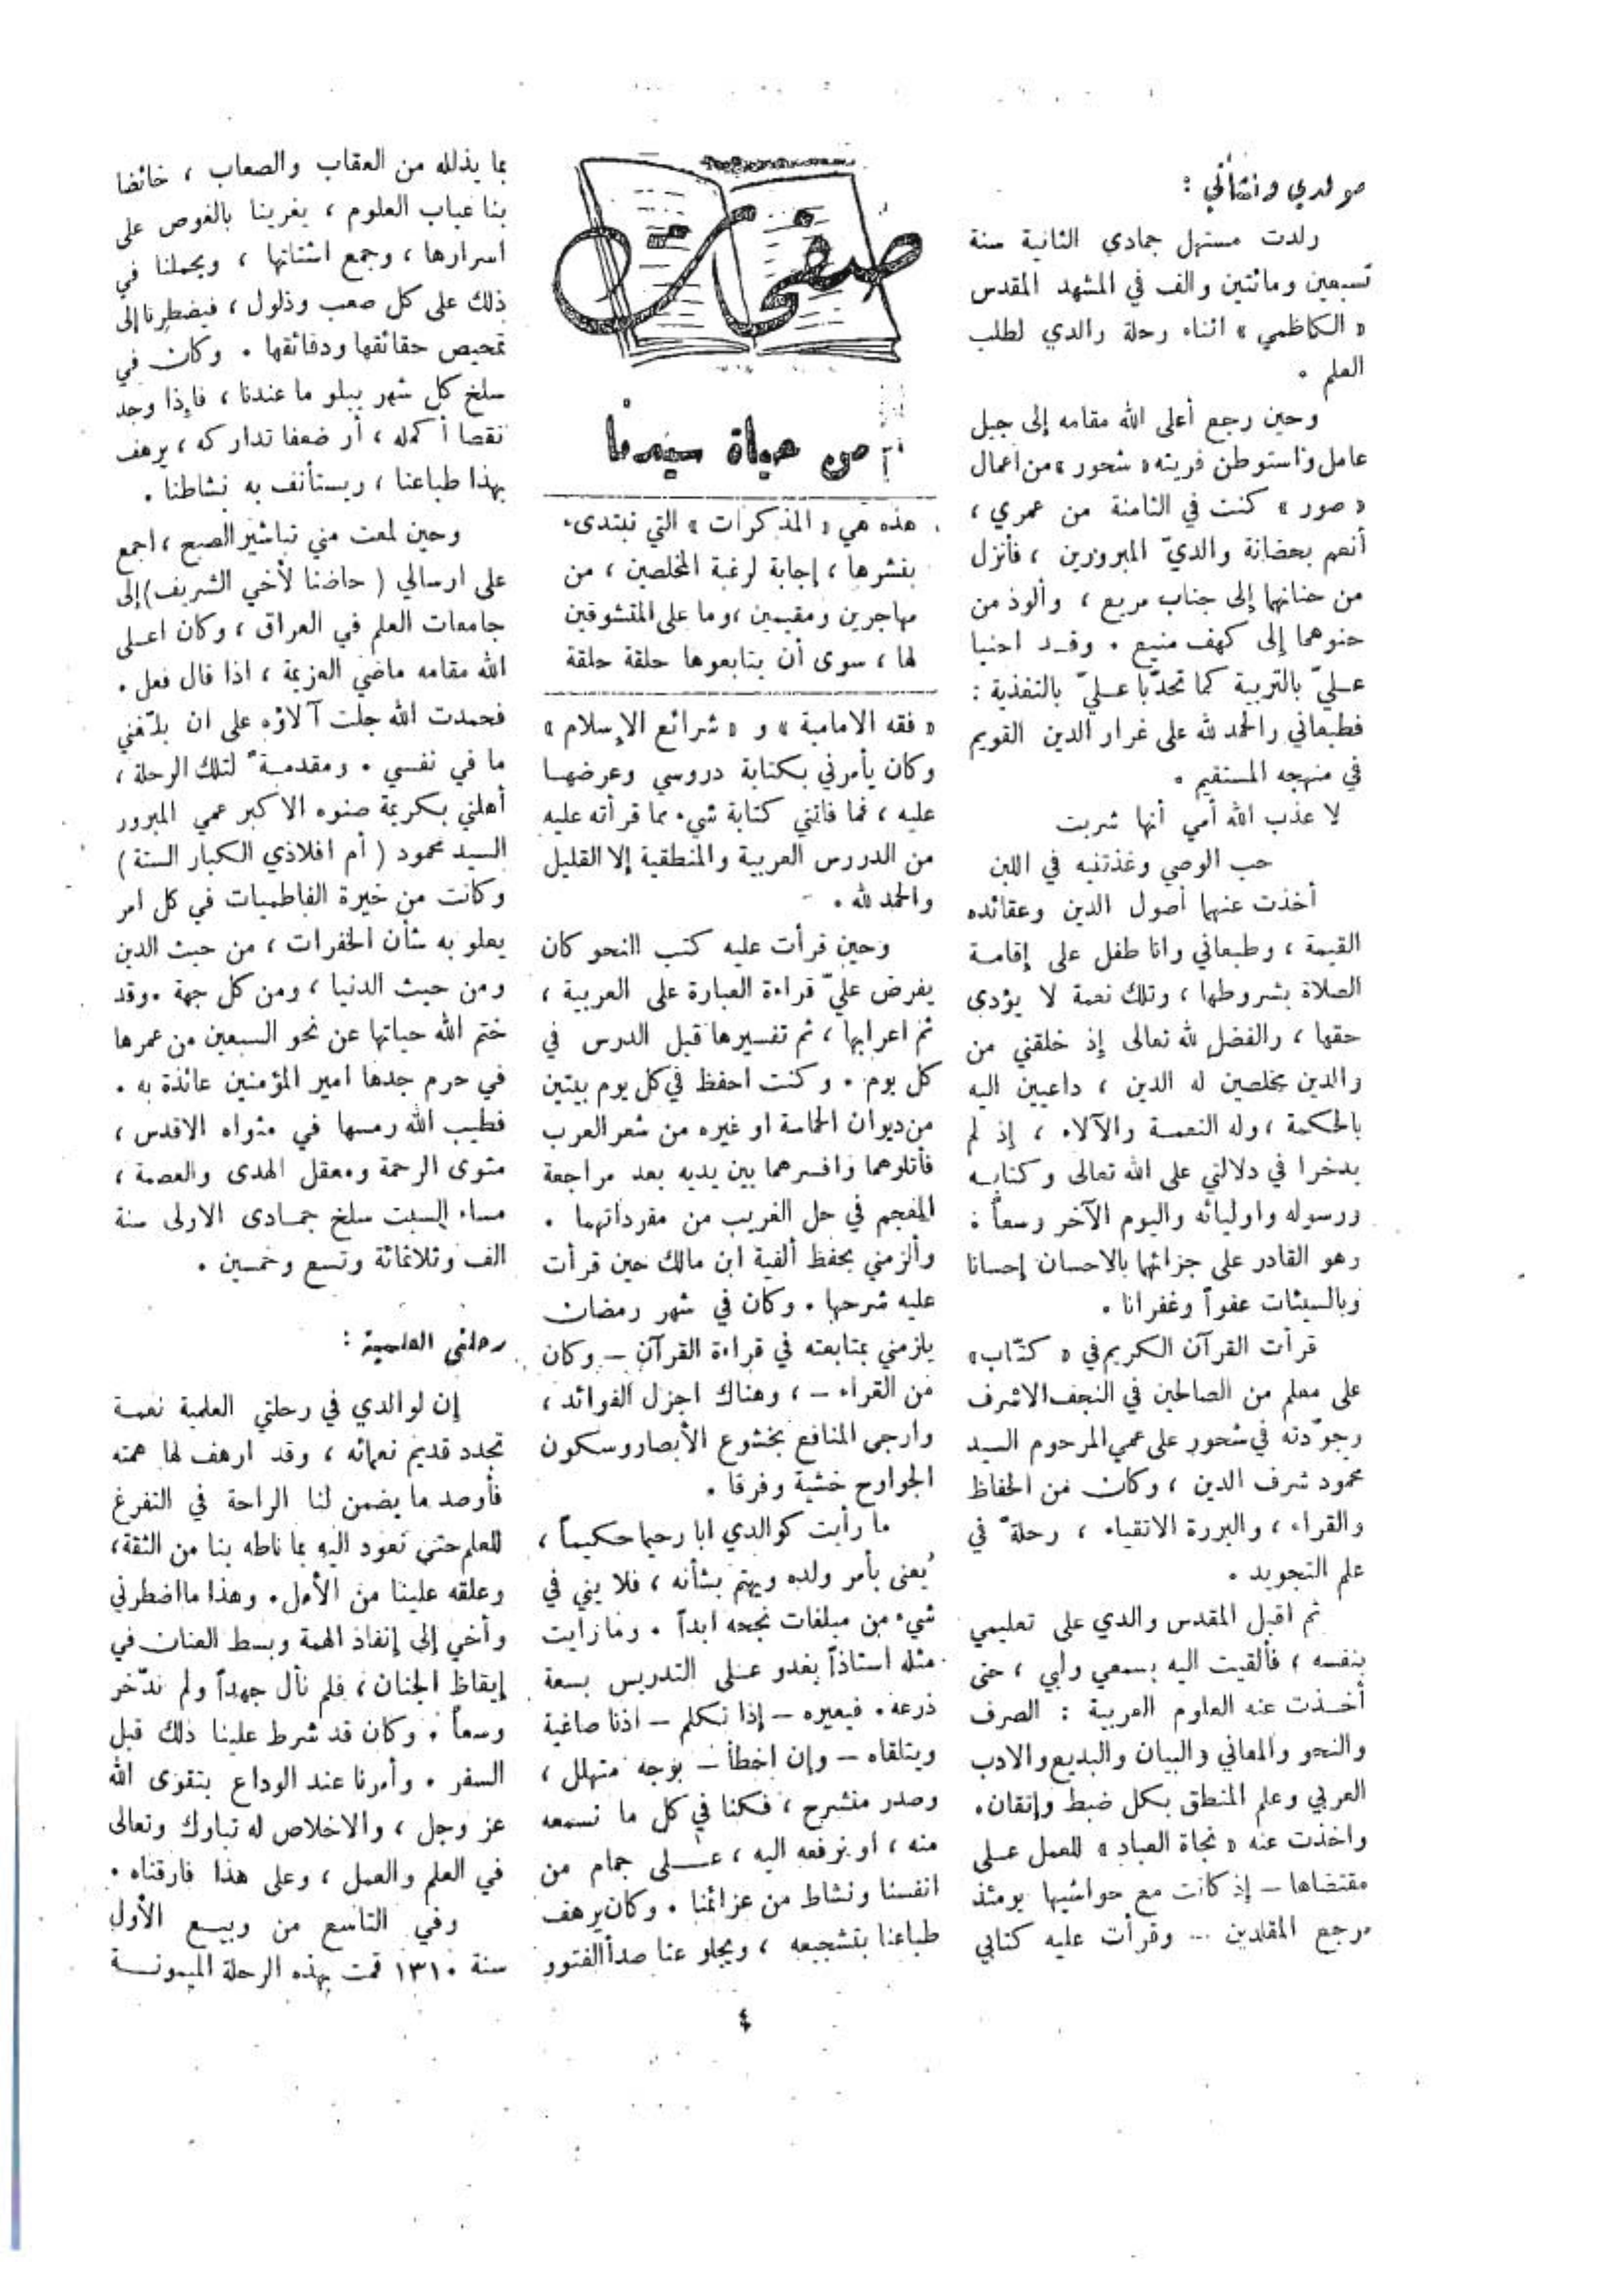 صفحات
من حياة سيدنا
هذه هي « المذكرات » التي نبتدىء
بنشرها ، إجابة لرغبة المخلصين ، من
مهاجرين ومقيمين ، وما على المتشوقين
لها ، سوى أن يتابعوها حلقة حلقة
مولدي ونشأتي :
ولدت مستهل جمادي الثانية سنة
تسعين ومائتين والف في المشهد المقدس
« الكاظمي » اثناء رحلة والدي لطلب
العلم .
وحين رجع أعلى الله مقامه إلى جبل
عامل واستوطن قريته « شحور » من اعمال
« صور » كنت في الثامنة من عمري ،
أنعم بحضانة والديّ المبرورين ، فأنزل
من حنانهما إلى جناب مريع ، وألوذ من
حنوهما إلى كهف منيع . وقد احنيا
عليّ بالتربية كما تحدّبا عليّ بالتغذية :
فطبعاني والحمد لله على غرار الدين القويم
في منهجه المستقيم .
لا عذب الله أمي أنها شربت
حب الوصي وغذتنيه في اللبن
أخذت عنهما أصول الدين وعقائده
القيمة ، وطبعاني وانا طفل على إقامة
الصلاة بشروطها ، وتلك نعمة لا يؤدى
حقها ، والفضل لله تعالى إذ خلقني من
والدين مخلصين له الدين ، داعيين اليه
بالحكمة ، وله النعمة والآلاء ، إذ لم
يدخرا في دلالتي على الله تعالى وكتابه
ورسوله واوليائه واليوم الآخر وسعاً :
وهو القادر على جزائهما بالاحسان إحسانا
وبالسيئات عفواً وغفرانا .
قرأت القرآن الكريم في « كتّاب »
على معلم من الصالحين في النجف الاشرف
وجوّدته في شحور على عمي المرحوم السيد
محمود شرف الدين ، وكان من الحفاظ
والقراء ، والبررة الاتقياء ، رحلةً في
علم التجويد .
ثم اقبل المقدس والدي على تعليمي
بنفسه ، فألقيت اليه بسمعي ولبي ، حتى
أخذت عنه العلوم العربية : الصرف
والنحو والمعاني والبيان والبديع والادب
العربي وعلم المنطق بكل ضبط وإتقان .
واخذت عنه « نجاة العباد » للعمل على
مقتضاها – إذ كانت مع حواشيها يومئذ
مرجع المقلدين ... وقرأت عليه كتابي
« فقه الامامية » و « شرائع الإسلام »
وكان يأمرني بكتابة دروسي وعرضها
عليه ، فما فاتني كتابة شيء مما قرأته عليه
من الدروس العربية والمنطقية إلا القليل
والحمد لله .
وحين قرأت عليه كتب النحو كان
يفرض عليّ قراءة العبارة على العربية ،
ثم اعرابها ، ثم تفسيرها قبل الدرس في
كل يوم . وكنت احفظ في كل يوم بيتين
من ديوان الحماسة او غيره من شعر العرب
فأتلوهما وافسرهما بين يديه بعد مراجعة
المعجم في حل الغريب من مفرداتهما .
وألزمني بحفظ ألفية ابن مالك حين قرأت
عليه شرحها . وكان في شهر رمضان
يلزمني بمتابعته في قراءة القرآن – وكان
من القراء – ، وهناك اجزل الفوائد ،
وارجى المنافع بخشوع الأبصار وسكون
الجوارح خشية وفرقا .
ما رأيت كوالدي ابا رحيما حكيماً ،
يُعنى بأمر ولده ويهتم بشأنه ، فلا يني في
شيء من مبلغات نجحه ابداً . وما رأيت
مثله استاذاً يغدو على التدريس بسعة
ذرعه . فيعيره – إذا تكلم – اذنا صاغية
ويتلقاه – وإن اخطأ – بوجه متهلل ،
وصدر منشرح ، فكنا في كل ما نسمعه
منه ، أو نرفعه اليه ، على جمام من
انفسنا ونشاط من عزائمنا . وكان يرهف
طباعنا بتشجيعه ، ويجلو عنا صدأ الفتور
بما يذلله من العقاب والصعاب ، خائضا
بنا عباب العلوم ، يغرينا بالغوص على
اسرارها ، وجمع اشتاتها ، ويحملنا في
ذلك على كل صعب وذلول ، فيضطرنا إلى
تمحيص حقائقها ودقائقها . وكان في
سلخ كل شهر يبلو ما عندنا ، فإذا وجد
نقصا أكمله ، أو ضعفا تداركه ، يرهف
بهذا طباعنا ، ويستأنف به نشاطنا .
وحين لمعت مني تباشير الصبح ، اجمع
على ارسالي ( حاضنا لأخي الشريف ) إلى
جامعات العلم في العراق ، وكان اعلى
الله مقامه ماضي العزيمة ، اذا قال فعل .
فحمدت الله جلت آلاؤه على ان بلّغني
ما في نفسي . ومقدمةً لتلك الرحلة ،
أهلني بكريمة صنوه الاكبر عمي المبرور
السيد محمود ( أم افلاذي الكبار الستة )
وكانت من خيرة الفاطميات في كل امر
يعلو به شأن الخفرات ، من حيث الدين
ومن حيث الدنيا ، ومن كل جهة . وقد
ختم الله حياتها عن نحو السبعين من عمرها
في حرم جدها امير المؤمنين عائذة به .
فطيب الله رمسها في مثواه الاقدس ،
مثوى الرحمة ومعقل الهدى والعصمة ،
مساء السبت سلخ جمادى الاولى سنة
الف وثلاثمائة وتسع وخمسين .
رحلتي العلمية :
إن لوالدي في رحلتي العلمية نعمة
تجدد قديم نعمائه ، وقد ارهف لها همته
فأوصد ما يضمن لنا الراحة في التفرغ
للعلم حتى نعود اليه بما ناطه بنا من الثقة ،
وعلقه علينا من الأمل . وهذا ما اضطرني
وأخي إلى إنفاذ الهمة وبسط العنان في
إيقاظ الجنان ، فلم نأل جهداً ولم ندّخر
وسعاً . وكان قد شرط علينا ذلك قبل
السفر . وأمرنا عند الوداع بتقوى الله
عز وجل ، والاخلاص له تبارك وتعالى
في العلم والعمل ، وعلى هذا فارقناه .
وفي التاسع من ربيع الأول
سنة ١٣١٠ قمت بهذه الرحلة الميمونة
٤